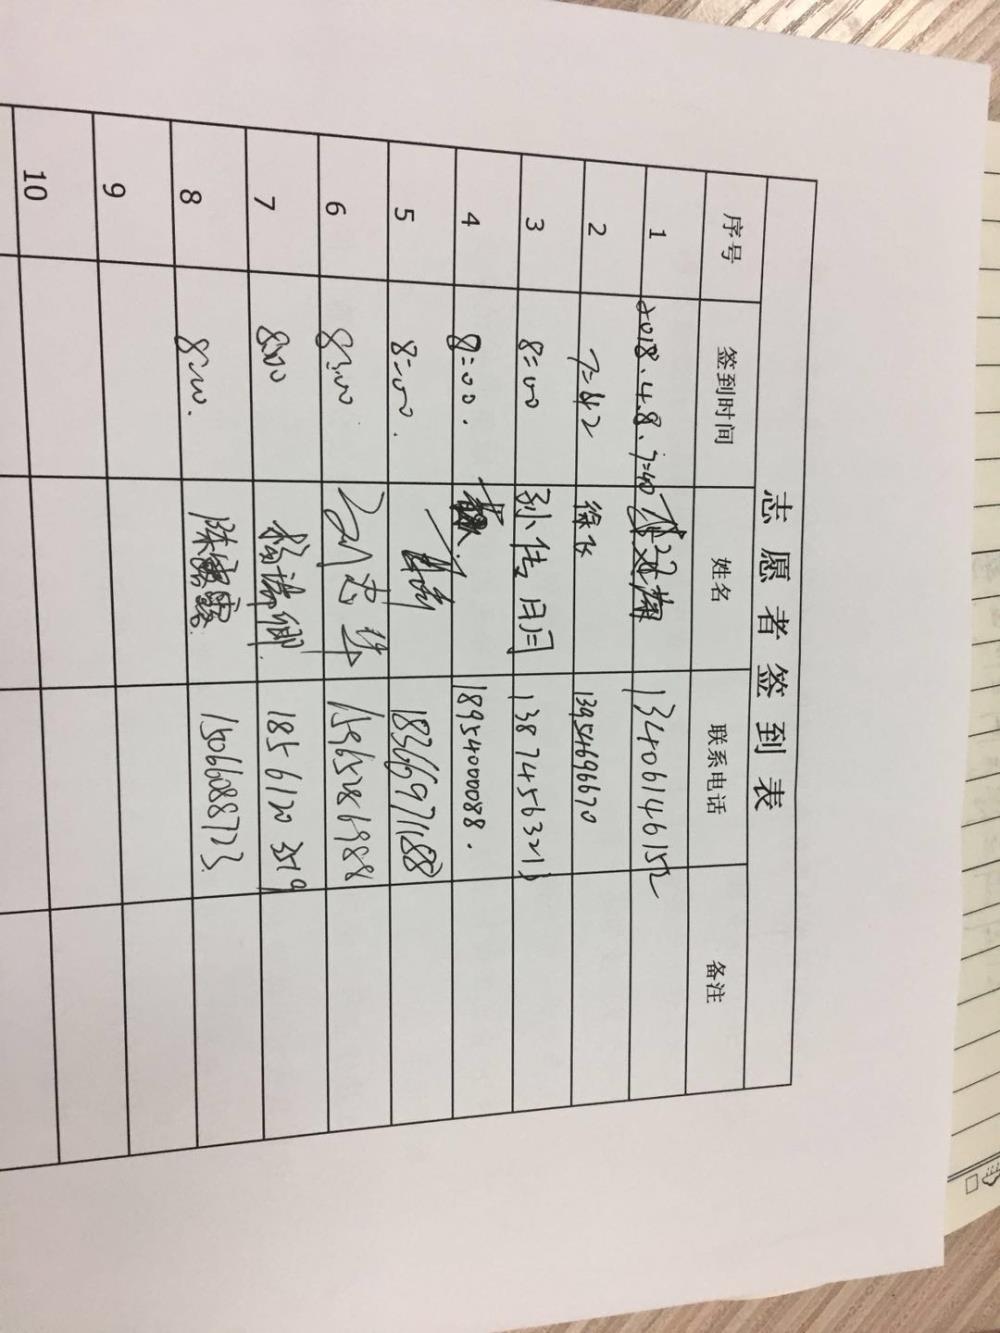 志愿者签到表
序号 签到时间 姓名 联系电话 备注
1 2018.4.8.7:40 13406146152
2 7:42 徐飞 13954696670
3 8:00 孙佳月 13874563213
4 8:00. 18954000088.
5 8:00. 18366971188
6 8:00 刘志华 15965286988
7 8:00 杨诺卿 1856120 3519
8 8:00. 陈 15066088723
9
10